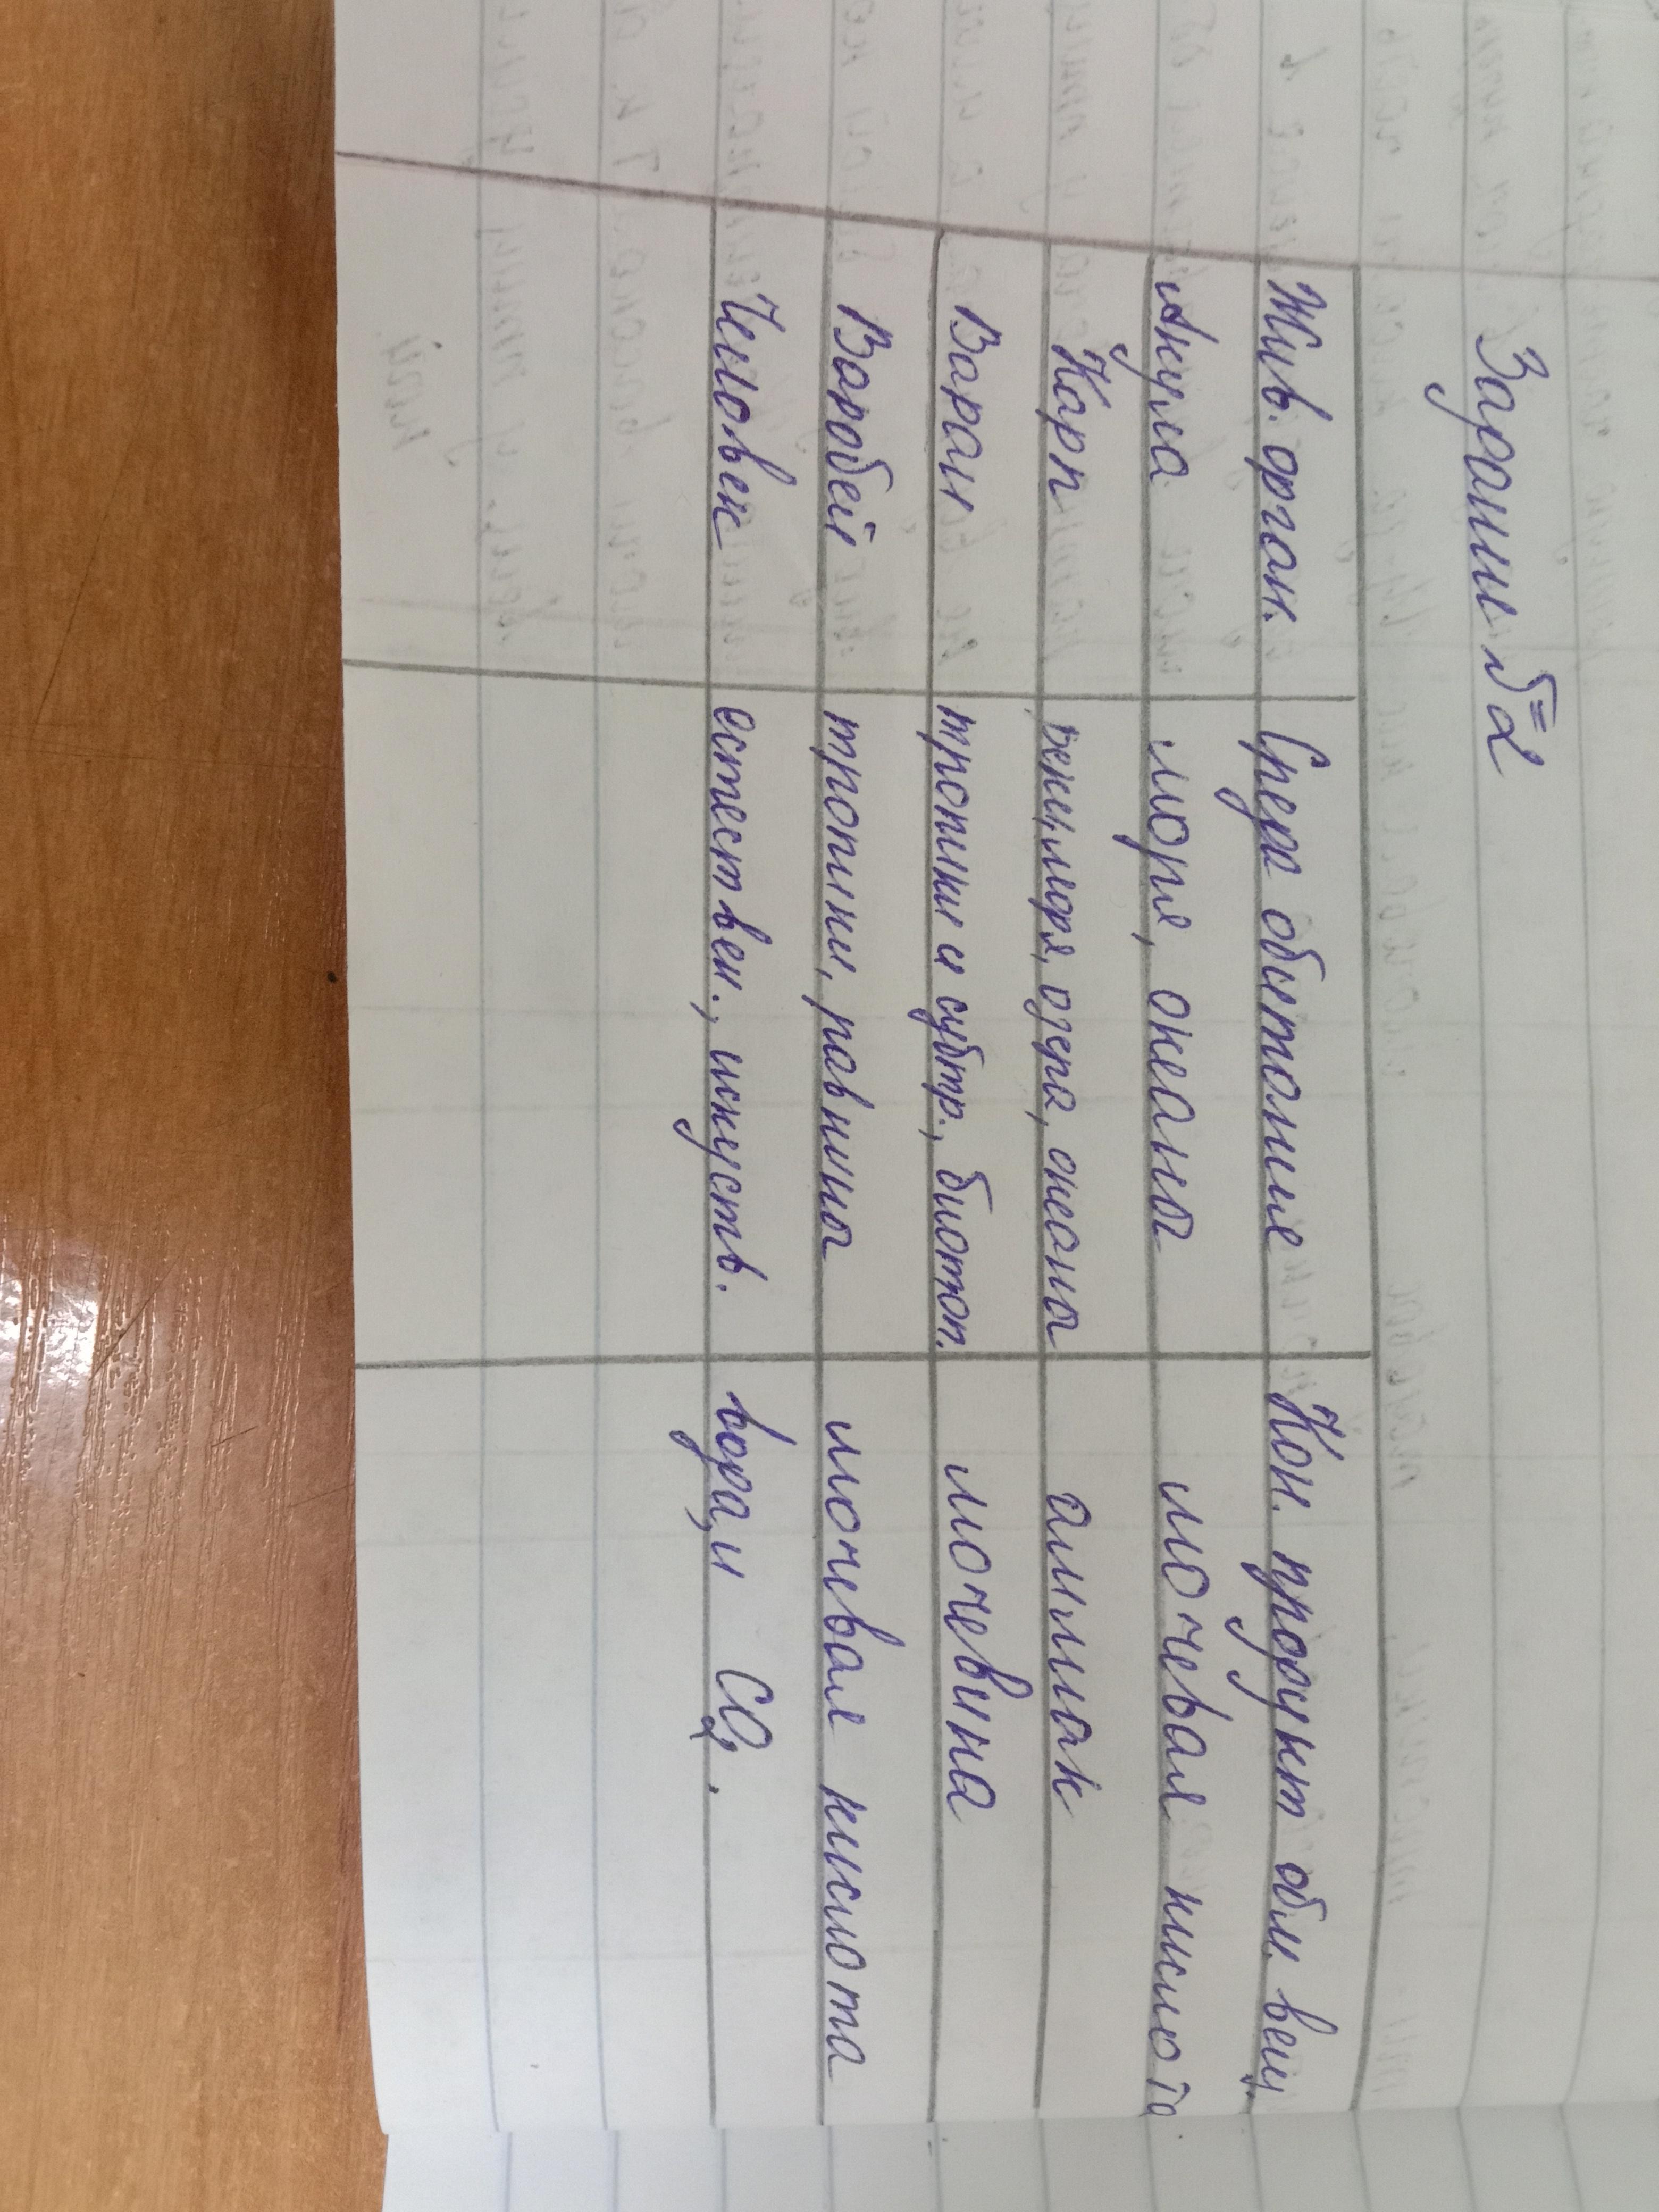 Задание №2
Жив. орган. Среда обитание Кон. продукт обм. вещ.
Акула моря, океаны мочевая кислота
Карп реки, моря, озера, океаны аммиак
Варан тропики и субтр., биотоп. мочевина
Воробей тропики, равнины мочевая кислота
Человек естествен., искуств. вода, и CO₂.